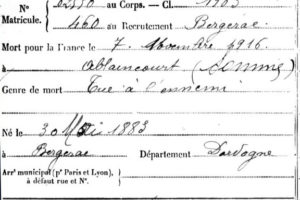 N° 02550 au Corps. — Cl. 1903
Matricule. 460 au Recrutement Bergerac
Mort pour la France le 7 Novembre 1916
à Ablaincourt (Somme)
Genre de mort Tué à l'ennemi
Né le 30 Mai 1883
à Bergerac Département Dordogne
Arrt municipal (pr Paris et Lyon),
à défaut rue et N°.